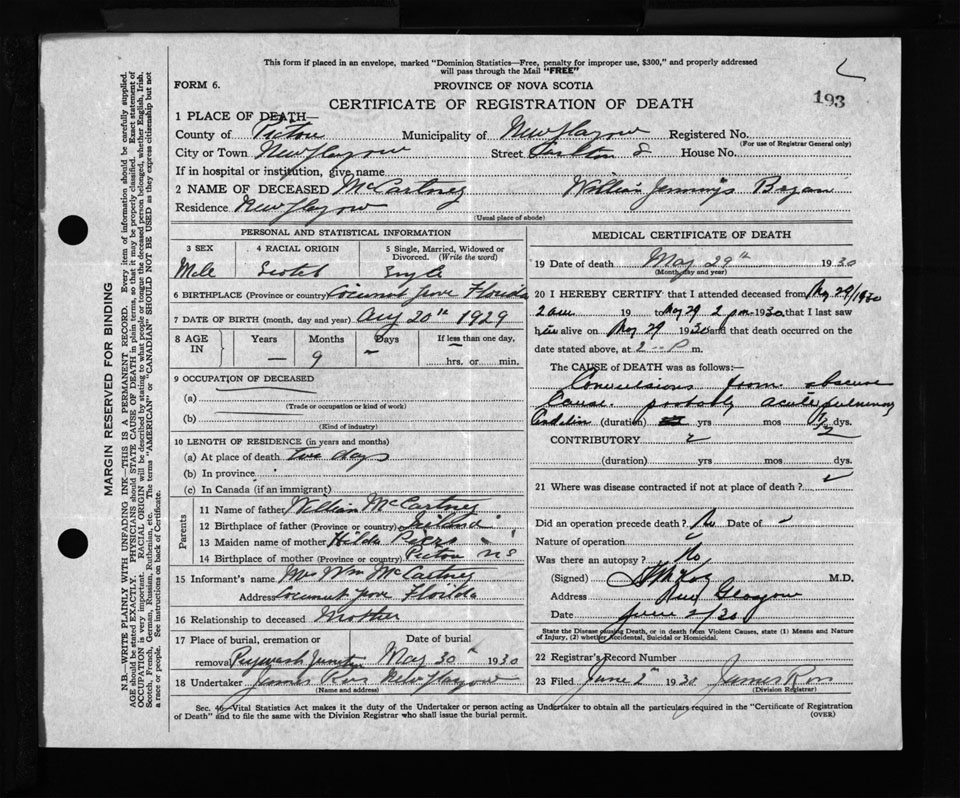 This form if placed in an envelope, marked "Dominion Statistics—Free, penalty for improper use, $300," and properly addressed
will pass through the Mail "FREE"
FORM 6.
PROVINCE OF NOVA SCOTIA
193
CERTIFICATE OF REGISTRATION OF DEATH
1 PLACE OF DEATH—
County of Pictou Municipality of New Glasgow Registered No.
(For use of Registrar General only)
City or Town New Glasgow Street House No.
If in hospital or institution, give name
2 NAME OF DECEASED McCartney William Jennings Bryan
Residence New Glasgow
(Usual place of abode)
PERSONAL AND STATISTICAL INFORMATION
3 SEX 4 RACIAL ORIGIN 5 Single, Married, Widowed or Divorced. (Write the word)
Male Scotch Single
6 BIRTHPLACE (Province or country) Florida
7 DATE OF BIRTH (month, day and year) Aug 20th 1929
8 AGE IN Years Months Days If less than one day,
— 9 – hrs. or min.
9 OCCUPATION OF DECEASED
(a)
(Trade or occupation or kind of work)
(b)
(Kind of industry)
10 LENGTH OF RESIDENCE (in years and months)
(a) At place of death two days
(b) In province
(c) In Canada (if an immigrant)
Parents
11 Name of father William McCartney
12 Birthplace of father (Province or country)
13 Maiden name of mother Hilda
14 Birthplace of mother (Province or country) Pictou NS
15 Informant's name Mrs Wm McCartney
Address Floilda
16 Relationship to deceased Mother
17 Place of burial, cremation or Date of burial
removal Junction May 30th 1930
18 Undertaker James Ross New Glasgow
(Name and address)
MEDICAL CERTIFICATE OF DEATH
19 Date of death May 29th 1930
(Month, day and year)
20 I HEREBY CERTIFY that I attended deceased from May 29/1930
2 am 19 to May 29 2 pm 1930 that I last saw
him alive on May 29 1930 and that death occurred on
date stated above, at 2 P m.
The CAUSE of DEATH was as follows:—
Convulsions from obscure
cause. probably acute pulmonary
(duration) yrs mos 1/2 dys.
CONTRIBUTORY
(duration) yrs mos dys.
21 Where was disease contracted if not at place of death?
Did an operation precede death? No Date of
Nature of operation
Was there an autopsy? No
(Signed) M.D.
Address New Glasgow
Date June 2/30
State the Disease causing Death, or in death from Violent Causes, state (1) Means and
Nature of Injury, (2) whether Accidental, Suicidal or Homicidal.
22 Registrar's Record Number
23 Filed June 2 1930 James Ross
(Division Registrar)
Sec. 46—Vital Statistics Act makes it the duty of the Undertaker or person acting as Undertaker to obtain all the particulars required in the "Certificate of Registration
of Death" and to file the same with the Division Registrar who shall issue the burial permit.
(OVER)
MARGIN RESERVED FOR BINDING
N.B.—WRITE PLAINLY WITH UNFADING INK—THIS IS A PERMANENT RECORD. Every item of information should be carefully supplied.
AGE should be stated EXACTLY. PHYSICIANS should STATE CAUSE OF DEATH in plain terms, so that it may be properly classified. Exact statement of
OCCUPATION is very important. RACIAL ORIGIN will be described by stating to what people or tongue the deceased person belonged, whether English, Irish,
Scotch, French, German, Russian, Ruthenian, etc. The terms "AMERICAN" or "CANADIAN" SHOULD NOT BE USED as they express citizenship but not
a race or people. See instructions on back of Certificate.